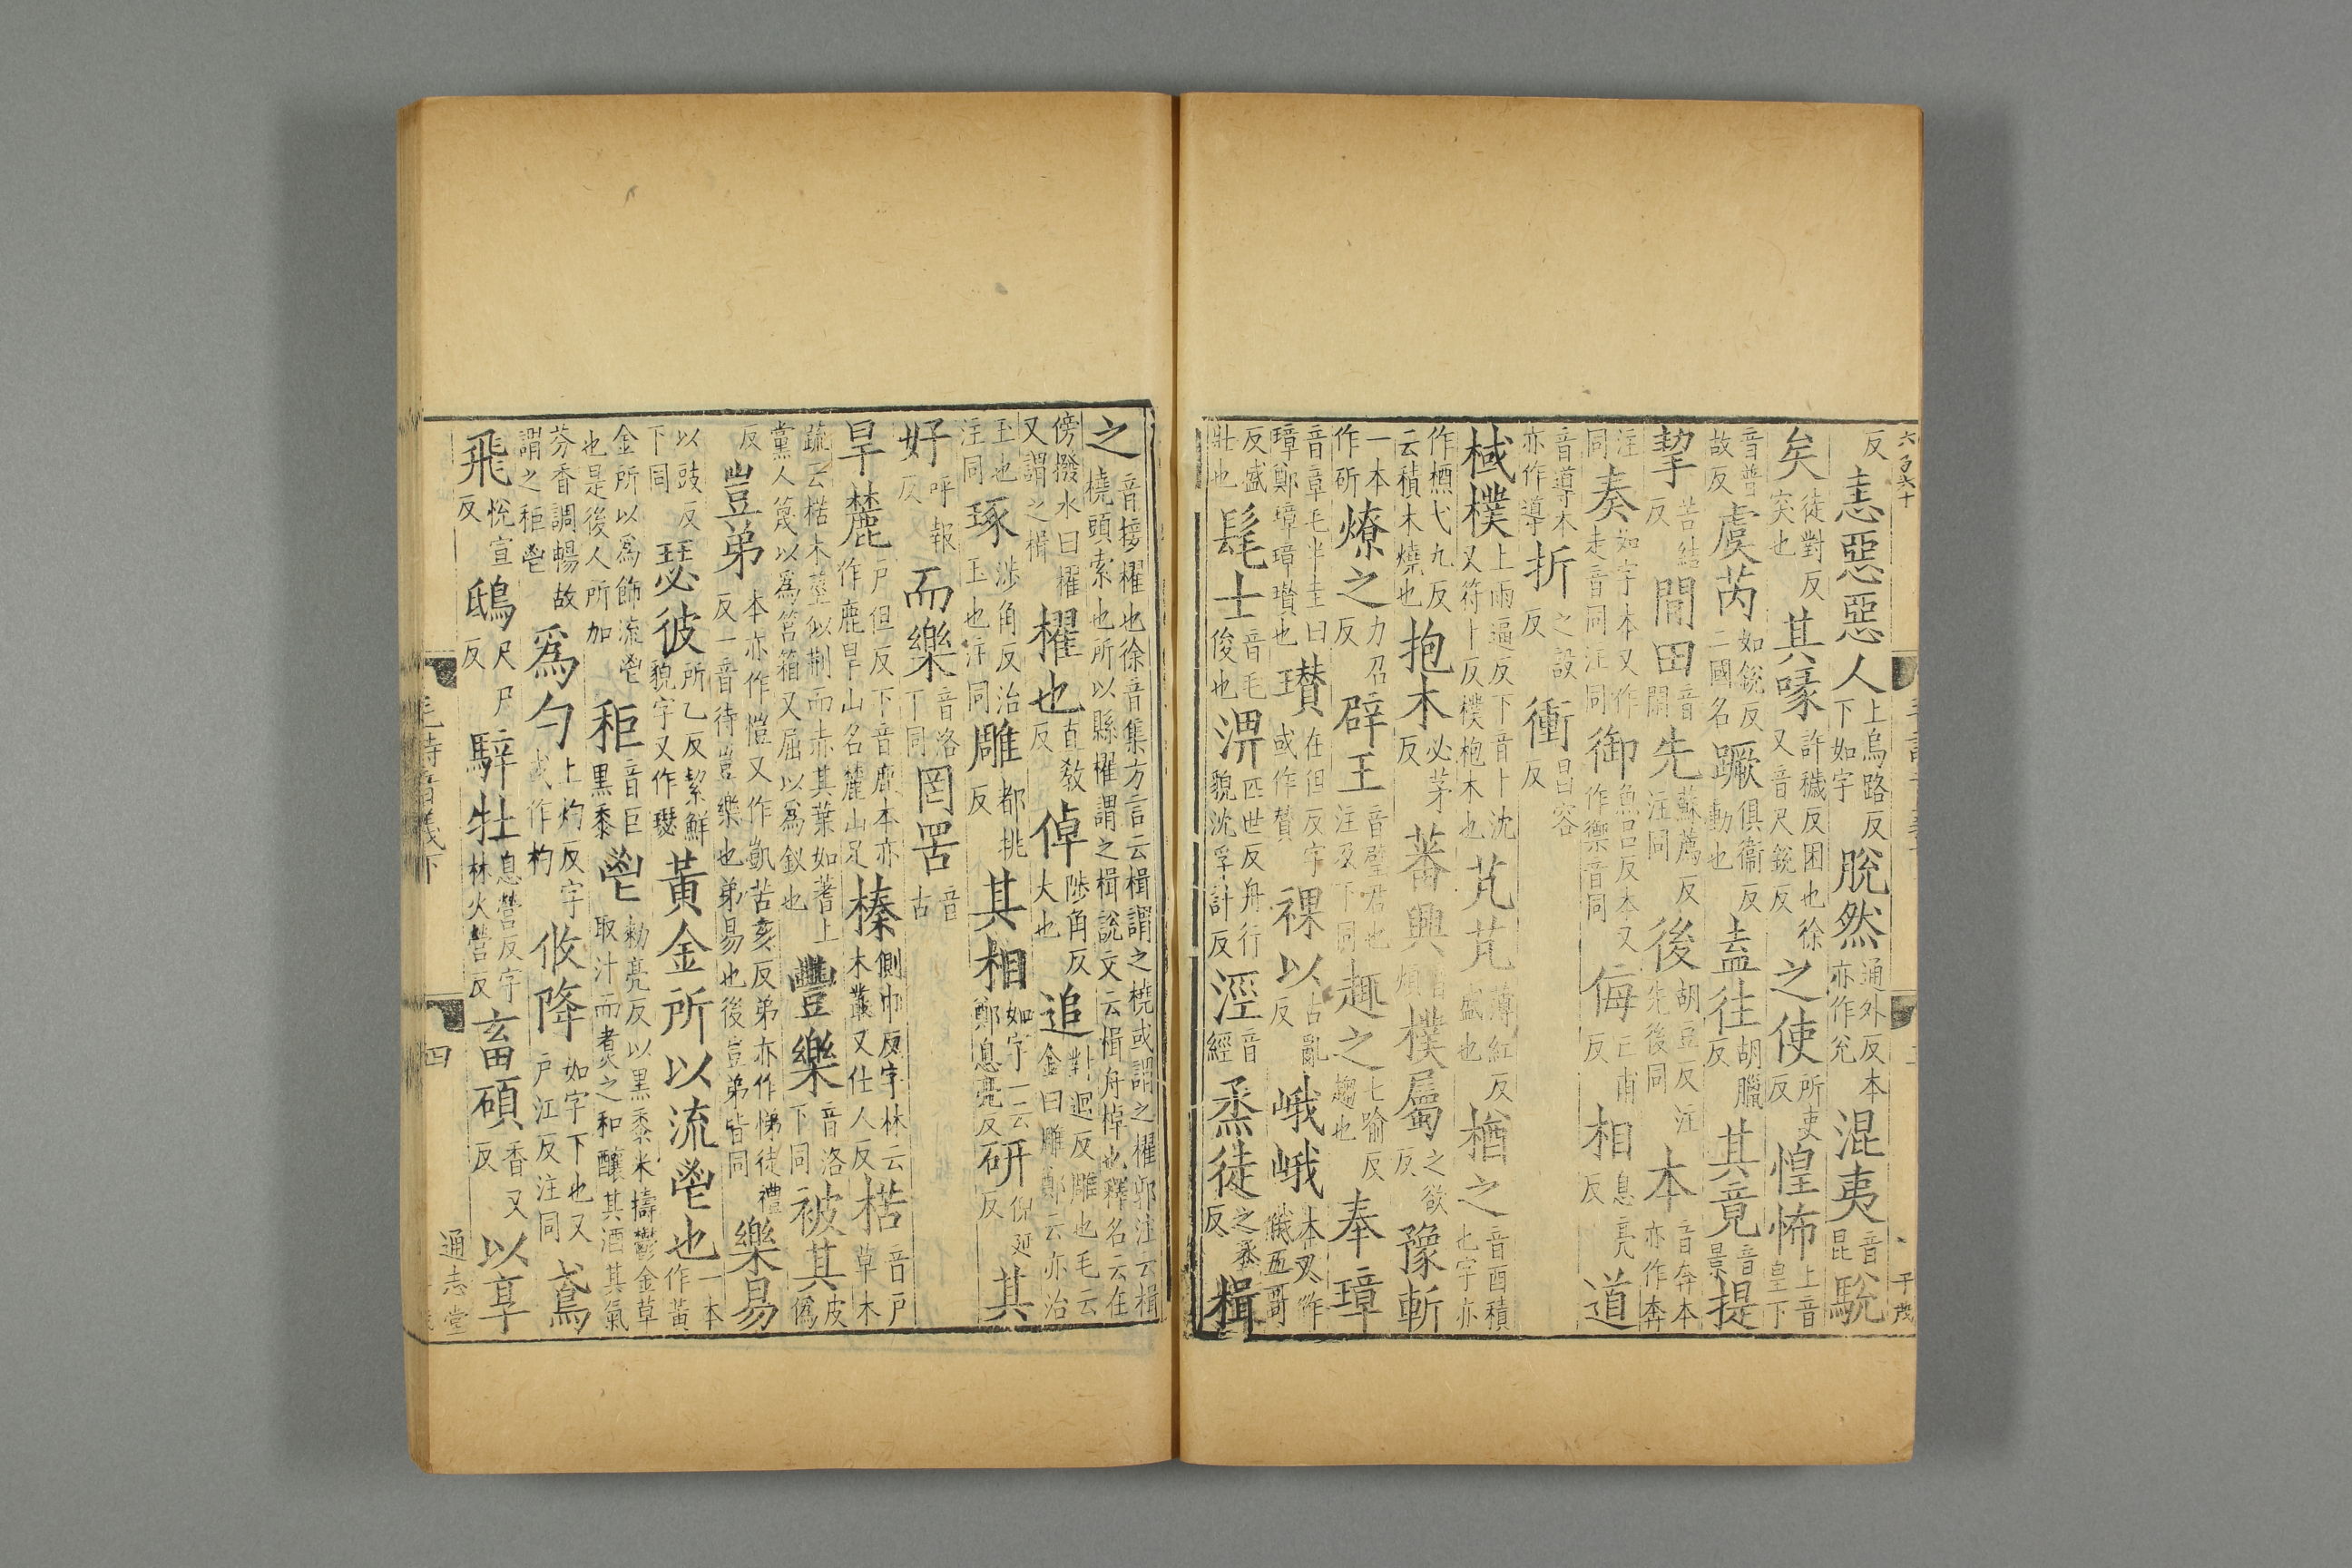 六百六十
反恚惡惡人上烏路反下如字脫然通外反本亦作兊混夷音昆駾
矣徒對反突也其喙許穢反困也徐又音尺銳反之使所吏反惶怖上音皇下
音普故反虞芮如銳反二國名蹶俱衞反動也盍往胡臘反其竟音景提
挈苦結反閒田音閑先蘇薦反注同後胡豆反注先後同本音奔本亦作奔
注同奏如字本又作走音同注同御魚呂反本又作禦音同侮亡甫反相息亮反道
音導本亦作導折之設反衝昌容反
棫樸上雨逼反下音卜沈又符卜反樸枹木也芃芃薄紅反盛也楢之音酉積也字亦
作槱弋九反云積木燒也抱木必茅反蕃興音煩樸屬之欲反豫斬
一本作斫燎之力召反辟王音璧君也注及下同趣之七喻反趨也奉璋
音章毛半圭曰璋鄭璋璋瓚也瓚在但反字或作贊祼以古亂反峨峨本又作俄五哥
反盛壯也髦士音毛俊也淠匹世反舟行貌沈孚計反涇音經烝徒之烝反楫
之音接櫂也徐音集方言云楫謂之橈或謂之櫂郭注云楫橈頭索也所以縣櫂謂之楫說文云楫舟棹也釋名云在
傍撥水曰櫂又謂之楫櫂也直敎反倬陟角反大也追對迴反雕也毛云金曰雕鄭云亦治
玉也注同琢陟角反治玉也注同雕都挑反其相如字一云鄭息亮反硏倪延反其
好呼報反而樂音洛下同罔罟音古
旱麓戶但反下音鹿本亦作鹿旱山名麓山足榛側巾反字林云木叢又仕人反楛音戶草木
疏云楛木莖似荆而赤其葉如蓍上黨人篾以爲筥箱又屈以爲釵也豐樂音洛下同被其皮僞
反豈弟本亦作愷又作凱苦亥反弟亦作悌徒禮反一音待豈樂也弟易也後豈弟皆同樂易
以豉反下同瑟彼所乙反絜鮮貌字又作璱黃金所以流鬯也一本作黃
金所以爲飾流鬯也是後人所加秬音巨黑黍鬯勑亮反以黑黍米擣鬱金草取汁而煑之和釀其酒其氣
芬香調暢故謂之秬鬯爲勺上灼反字或作杓攸降如字下也又戶江反注同鳶
飛悅宣反鴟尺尸反騂牡息營反字林火營反畜碩香又反以享
毛詩音義下
四
通志堂